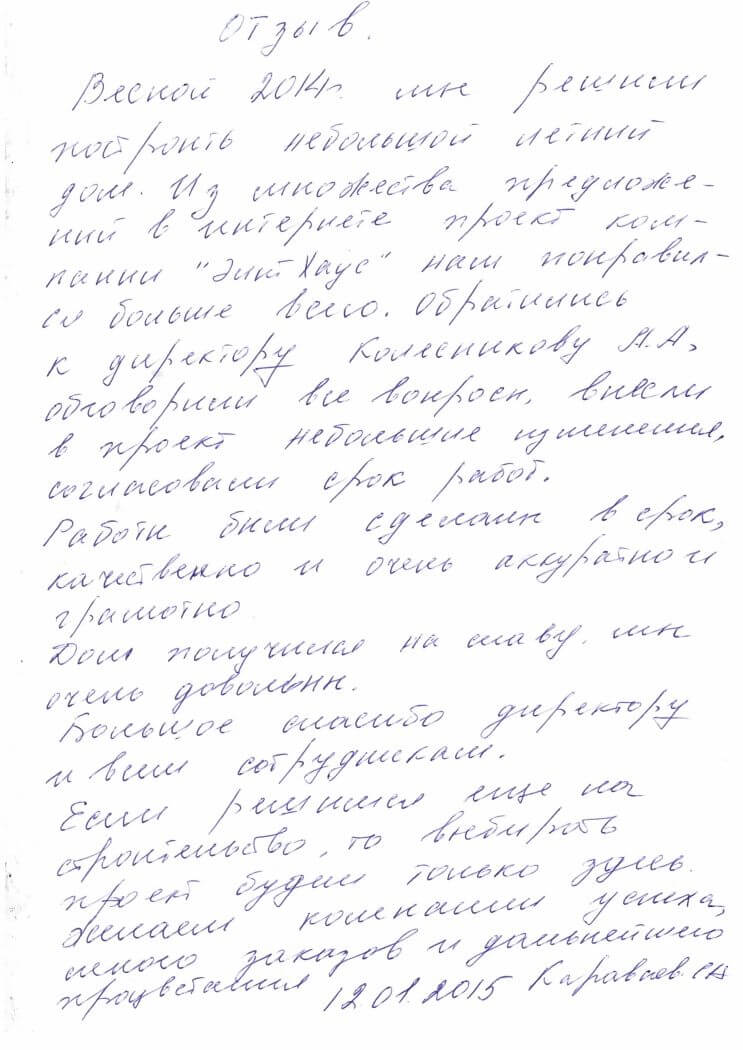 Отзыв.
Весной 2014г. мы решили
построить небольшой летний
дом. Из множества предложе-
ний в интернете проект ком-
пании "Элит Хаус" нам понравил-
ся больше всего. Обратились
к директору Колесникову А.А,
обговорили все вопросы, внесли
в проект небольшие изменения,
согласовали срок работ.
Работы были сделаны в срок,
качественно и очень аккуратно и
грамотно
Дом получился на славу. мы
очень довольны.
Большое спасибо директору
и всем сотрудникам.
Если решимся еще на
строительство, то выбирать
проект будем только здесь.
Желаем компании успеха,
много заказов и дальнейшего
процветания 12.01.2015 Караваев